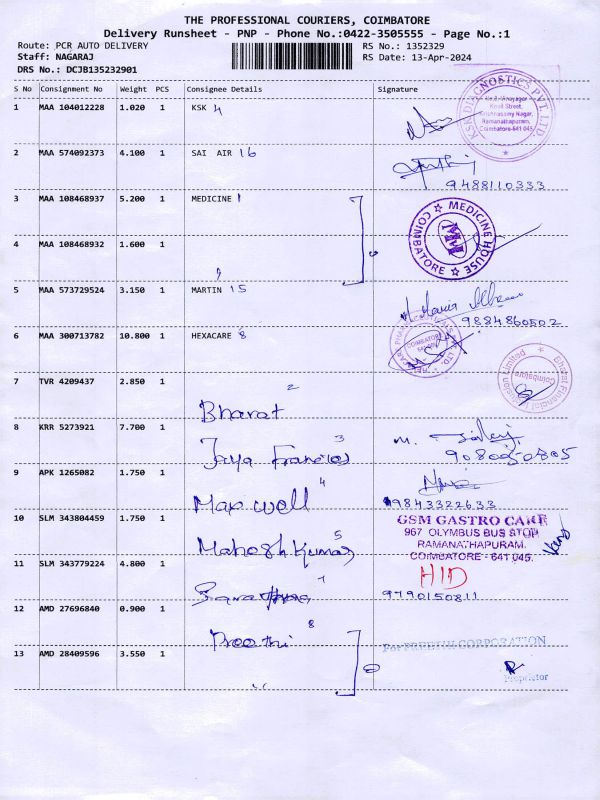 THE PROFESSIONAL COURIERS, COIMBATORE
Delivery Runsheet - PNP - Phone No.:0422-3505555 - Page No.:1
Route: PCR AUTO DELIVERY RS No.: 1352329
Staff: NAGARAJ RS Date: 13-Apr-2024
DRS No.: DCJB135232901
S No Consignment No Weight PCS Consignee Details Signature
1 MAA 104012228 1.020 1 KSK 4
KSK DIAGNOSTICS PVT. LTD.
Kovil Street,
Krishnasamy Nagar,
Ramanathapuram,
Coimbatore-641 045.
2 MAA 574092373 4.100 1 SAI AIR 16
9488110333
3 MAA 108468937 5.200 1 MEDICINE 1
MEDICINE HOUSE
COIMBATORE
4 MAA 108468932 1.600 1
5 MAA 573729524 3.150 1 MARTIN 15
9884860502
6 MAA 300713782 10.800 1 HEXACARE 8
COIMBATORE
7 TVR 4209437 2.850 1 Bharat 2
Bharat Financial
Limited
Coimbatore
8 KRR 5273921 7.700 1 Jaya Francies 3
9 APK 1265082 1.750 1 Maxwell 4
9843322633
10 SLM 343804459 1.750 1 Mahesh Kumar 5
GSM GASTRO CARE
967 OLYMBUS BUS STOP
RAMANATHAPURAM.
COIMBATORE - 641 045.
11 SLM 343779224 4.800 1 7
9790150811
12 AMD 27696840 0.900 1 Preethi 8
For PREETHI CORPORATION
13 AMD 28409596 3.550 1
Proprietor